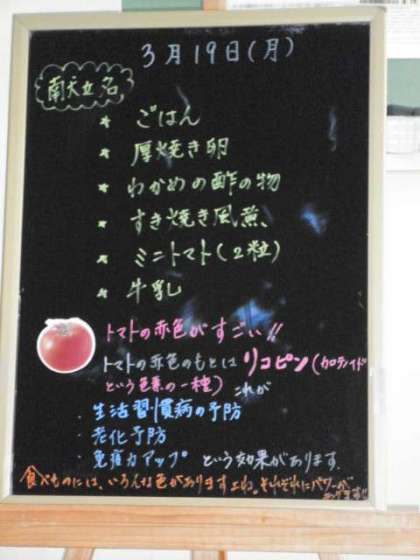 3月19日(月)
献立名
* ごはん
* 厚焼き卵
* わかめの酢の物
* すき焼き風煮
* ミニトマト(2粒)
* 牛乳
トマトの赤色がすごい!!
トマトの赤色のもとはリコピン(カロテノイド
という色素の一種) これが
・生活習慣病の予防
・老化予防
・免疫力アップ という効果があります。
食べものには、いろんな色がありますよね。それぞれにパワーが